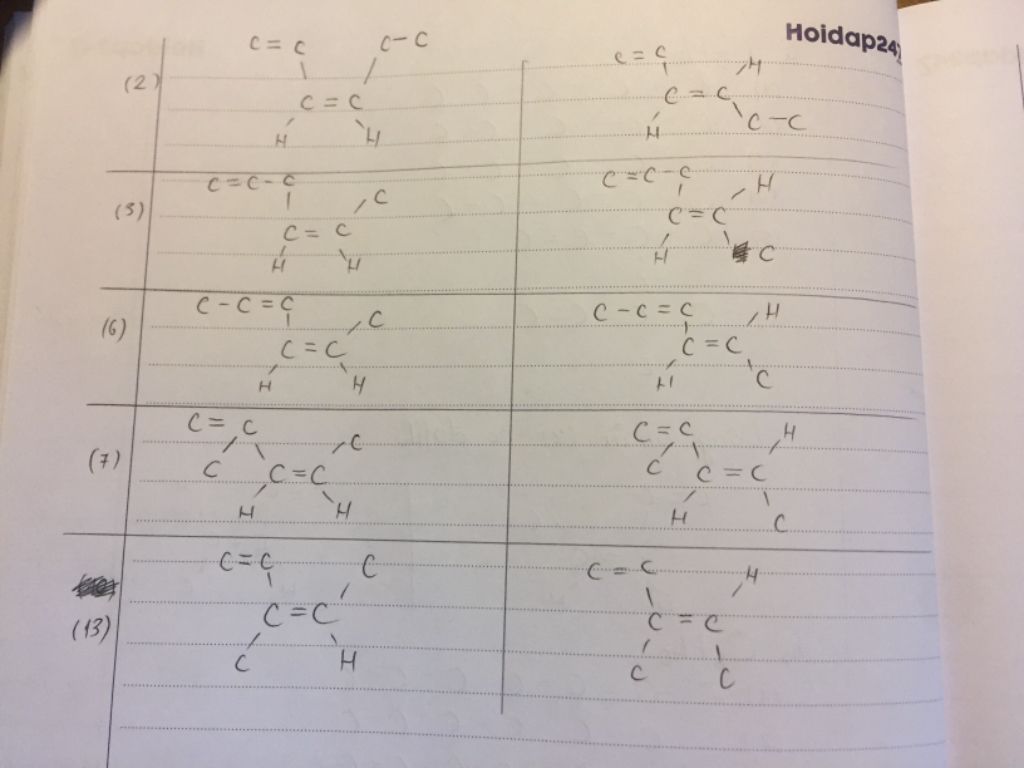 Hoidap247
C = C C - C C = C H
(2) C = C C = C
H H H C - C
C = C - C C C = C - C H
(3) C = C C = C
H H H C
C - C = C C C - C = C H
(6) C = C C = C
H H H C
C = C C C = C H
(7) C C = C C C = C
H H H C
C = C C C = C H
(13) C = C C = C
C H C C